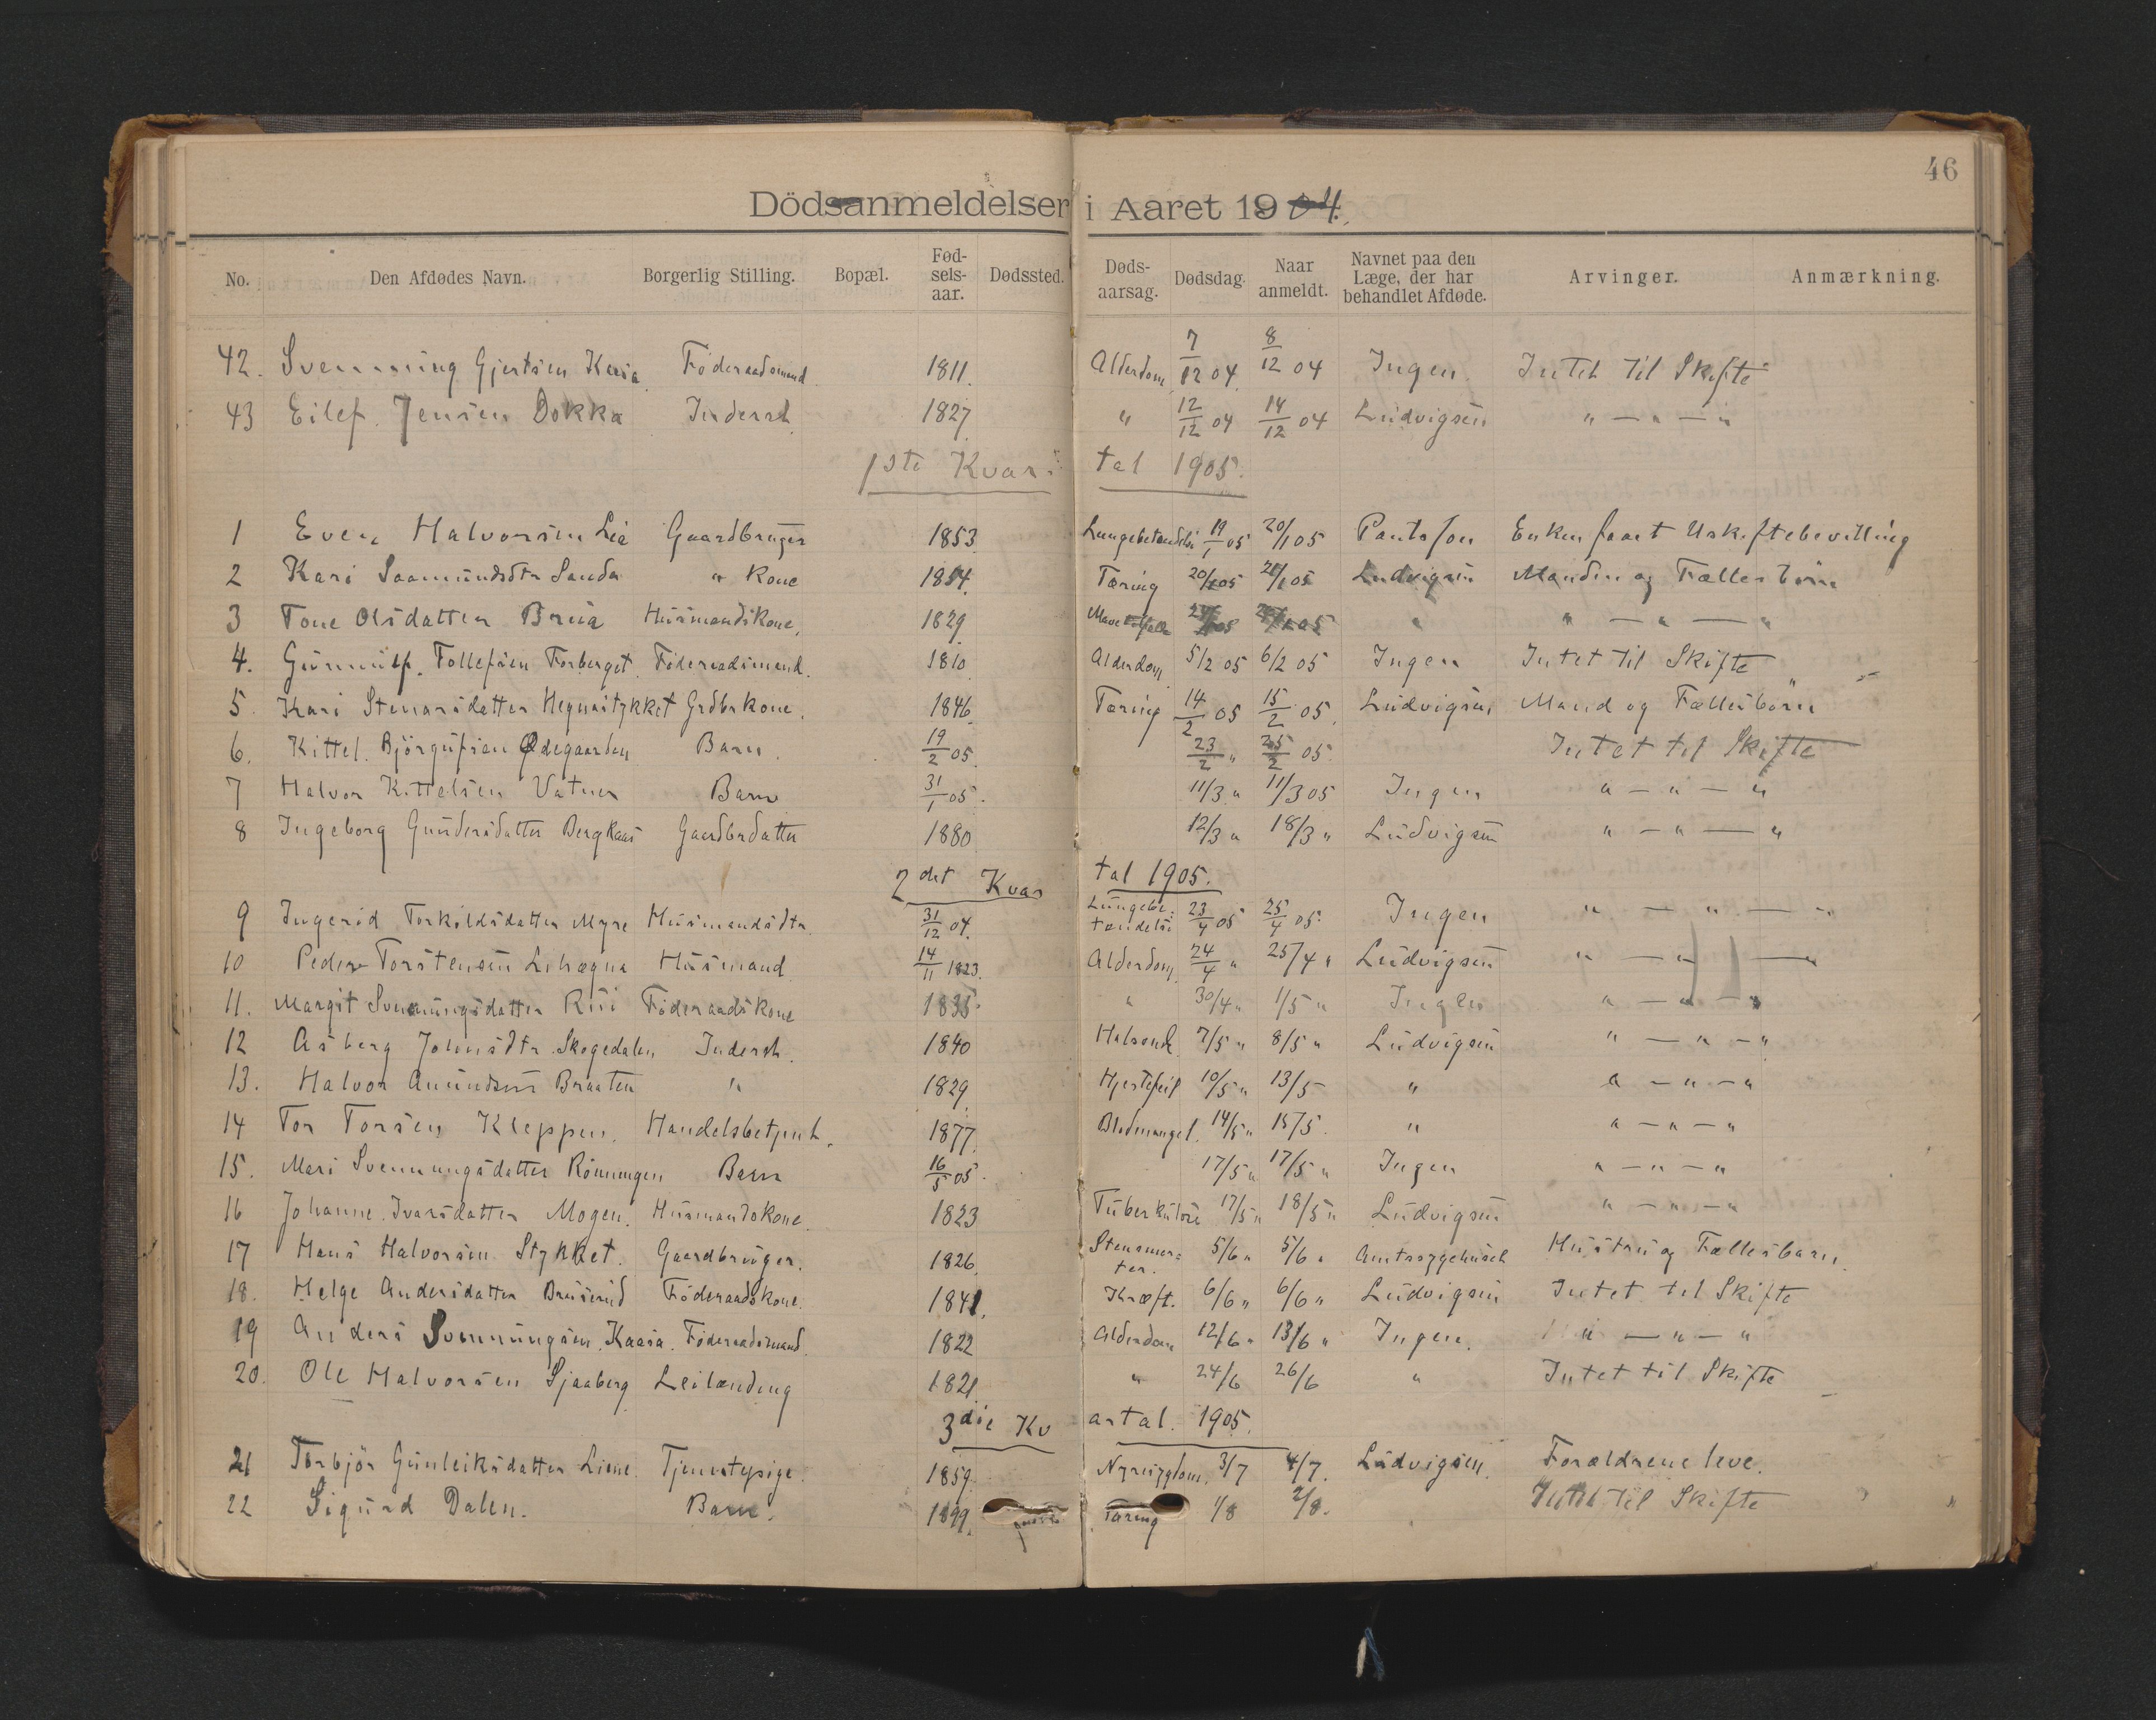 46
Dödsanmeldelser i Aaret 1904.
No. Den Afdødes Navn. Borgerlig Stilling. Bopæl. Fød-sels-aar. Dødssted. Døds-aarsag. Dødsdag. Naar anmeldt. Navnet paa den Læge, der har behandlet Afdøde. Arvinger. Anmærkning.
42. Svenning Gjertsen Föderaadsmand 1811. Alderdom 7/12 04 8/12 04 Ingen Intet til Skifte
43 Eilef Jensen Dokka Inderst 1827 " 12/12 04 14/12 04 Ludvigsen " — " — "
1ste Kvartal 1905.
1 Even Halvorsen Lia Gaardbruger 1853 Lungebetændelse 19/1 05 20/1 05 Enken faaet Uskiftebevilling
2 Kari Saamundsdtr Sanda " Kone 1854. Tæring 20/1 05 21/1 05 Ludvigsen Manden og Fællesbørn
3 Tone Olsdatter Brua Husmandskone, 1829 " " — " — "
4. Gunnulf Tollefsen Forberget Föderaadsmand. 1810 Alderdom 5/2 05 6/2 05 Ingen Intet til Skifte
5 Kari Stenarsdatter Hegnastykket Grdbrkone. 1846 Tæring 14/2 05 15/2 05 Ludvigsen Mand og Fællesbörn
6. Kittel Björgufsen Ødegaarden Barn 19/2 05 23/2 " 25/2 05 Intet til Skifte
7 Halvor Kittelsen Vatner Barn 31/1 05. 11/3 " 11/3 05 Ingen " — " — "
8 Ingeborg Gundersdatter Bergkaas Gaardbrdatter 1880 12/3 " 18/3 " Ludvigsen " — " — "
2det Kvartal 1905.
9 Ingerid Torkildsdatter Myre Husmandsdtr. 31/12 04. Lungebe:tændelse 23/4 05 25/4 05 Ingen " — " — "
10 Peder Torstensen Husmand 14/11 1823. Alderdom 24/4 " 25/4 " Ludvigsen " — " — "
11. Margit Svenningsdatter Rui Föderaadskone 1835 " 30/4 " 1/5 " Ingen " — " — "
12 Asberg Johnsdtr. Skogedalen Inderst. 1840 7/5 " 8/5 " Ludvigsen " — " — "
13. Halvor Amundsen Braaten " 1829 Hjertefeil 10/5 " 13/5 " " — " — "
14 Tor Torsen Kleppen. Handelsbetjent. 1877. Blodmangel. 14/5 " 15/5. " " — " — "
15. Mari Svenningsdatter Rönningen Barn 16/5 05. 17/5 " 17/5 " Ingen " — " — "
16 Johanne Ivarsdatter Mogen. Husmandskone. 1823 Tuberkulose 17/5 " 18/5 " Ludvigsen " — " — "
17 Hans Halvorsen Stykket. Gaardbruger. 1826. Stensmer:ter. 5/6 " 5/6 " Amtssygehuset Hustru og Fællesbarn.
18. Helge Andersdatter Bruserud Föderaadskone. 1841. Kræft. 6/6 " 6/6 " Ludvigsen Intet til Skifte
19 Anders Svenningsen Kaasa. Föderaadsmand. 1822 Alderdom 12/6 " 13/6 " Ingen. " — " — "
20. Ole Halvorsen Sjaaberg Leilænding 1821 " 24/6 26/6 " Intet til Skifte
3die Kvartal. 1905.
21 Torbjör Gunleiksdatter Liene Tjenestepige. 1859. Nyresygdom. 3/7 4/7. Ludvigsen. Forældrene leve.
22 Sigurd Dalen. Barn. 1899. Tæring 1/8 2/8. Intet til Skifte